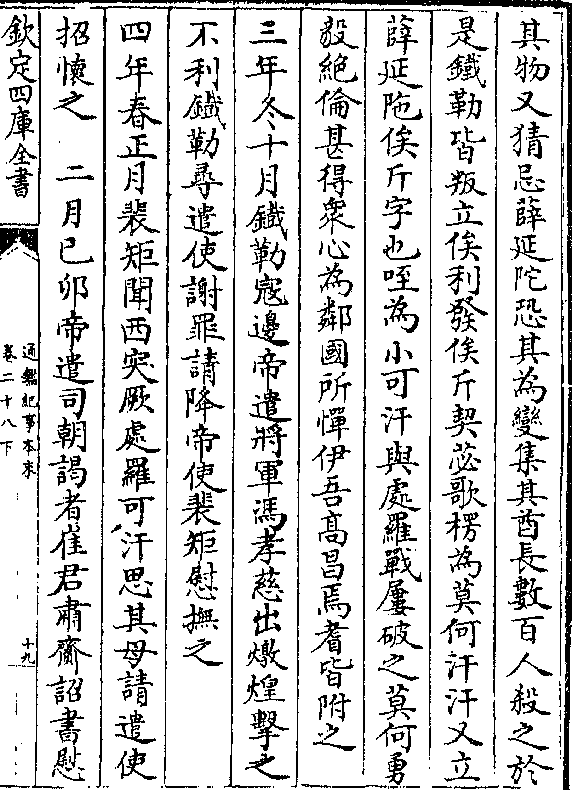 其物又猜忌薛延陀恐其為變集其酋長數百人殺之於
是鐵勒皆叛立俟利發俟斤契苾歌楞為莫何汗汗又立
薛延陁俟斤字也咥為小可汗與處羅戰屢破之莫何勇
毅絶倫甚得衆心為鄰國所憚伊吾髙昌焉耆皆附之
三年冬十月鐵勒寇邊帝遣將軍馮孝慈出燉煌擊之
不利鐵勒尋遣使謝罪請降帝使裴矩慰撫之
四年春正月裴矩聞西突厥處羅可汗思其母請遣使
招懷之　二月己卯帝遣司朝謁者崔君肅齎詔書慰
欽定四庫全書
通鑑紀事本末
卷二十八下
十九